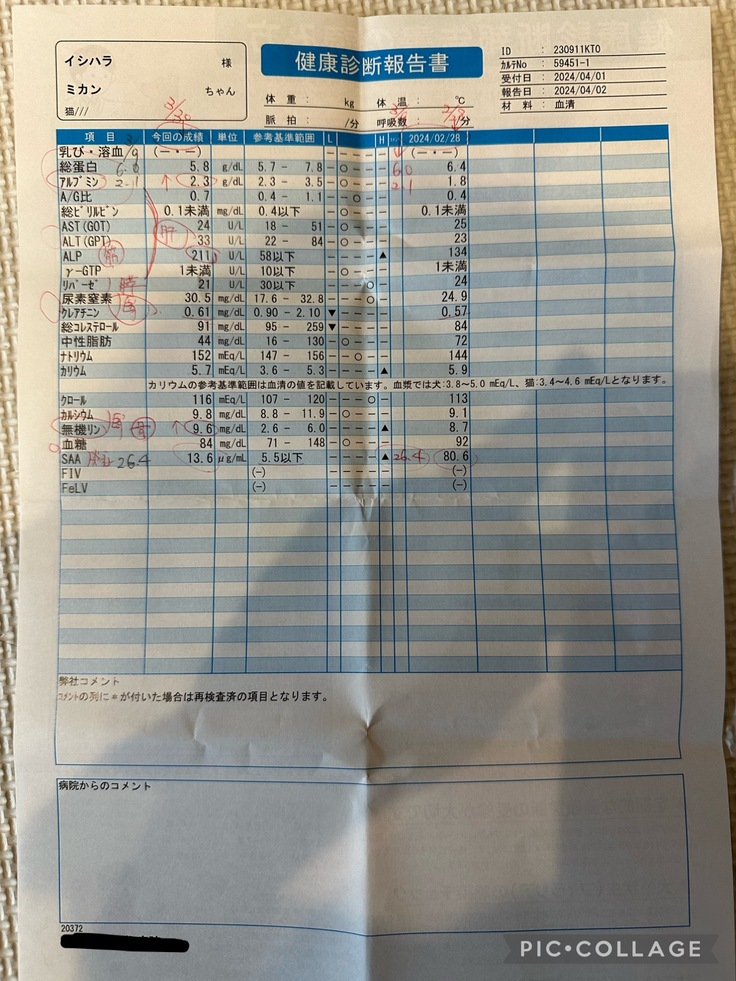 イシハラ 様
ミカン ちゃん
猫///
健康診断報告書
体 重 : kg 体 温 : ℃
脈 拍 : /分 呼吸数 : /分
ID : 230911KT0
ｶﾙﾃNo : 59451-1
受付日 : 2024/04/01
報告日 : 2024/04/02
材 料 : 血清
3/30
項 目 今回の成績 単位 参考基準範囲 L H 2024/02/28
乳び・溶血 (－・－) (－・－)
総蛋白 6.0 5.8 g/dL 5.7 - 7.8 -○-- 6.0 6.4
ｱﾙﾌﾞﾐﾝ 2.1 ↑ 2.3 g/dL 2.3 - 3.5 -○-- 2.1 1.8
A/G比 0.7 0.4 - 1.1 --○- 0.4
総ﾋﾞﾘﾙﾋﾞﾝ 0.1未満 mg/dL 0.4以下 -○-- 0.1未満
AST(GOT) 24 U/L 18 - 51 -○-- 25
ALT(GPT) 肝 33 U/L 22 - 84 -○-- 23
ALP 211 U/L 58以下 ---- ▲ 134
γ-GTP 1未満 U/L 10以下 -○-- 1未満
ﾘﾊﾟｰｾﾞ 膵 21 U/L 30以下 ---○ 24
尿素窒素 30.5 mg/dL 17.6 - 32.8 ---○ 24.9
ｸﾚｱﾁﾆﾝ 0.61 mg/dL 0.90 - 2.10 ▼ ---- 0.57
総ｺﾚｽﾃﾛｰﾙ 91 mg/dL 95 - 259 ▼ ---- 84
中性脂肪 44 mg/dL 16 - 130 -○-- 72
ﾅﾄﾘｳﾑ 152 mEq/L 147 - 156 --○- 144
ｶﾘｳﾑ 5.7 mEq/L 3.6 - 5.3 ---- ▲ 5.9
カリウムの参考基準範囲は血清の値を記載しています。血漿では犬:3.8～5.0 mEq/L、猫:3.4～4.6 mEq/Lとなります。
ｸﾛｰﾙ 116 mEq/L 107 - 120 ---○ 113
ｶﾙｼｳﾑ 9.8 mg/dL 8.8 - 11.9 -○-- 9.1
無機ﾘﾝ 骨 ↑ 9.6 mg/dL 2.6 - 6.0 ---- ▲ 8.7
血糖 84 mg/dL 71 - 148 -○-- 92
SAA 26.4 13.6 μg/mL 5.5以下 ---- ▲ 26.4 80.6
FIV (-) (-)
FeLV (-) (-)
弊社コメント
ｺﾒﾝﾄの列に＊が付いた場合は再検査済の項目となります。
病院からのコメント
20372
PIC•COLLAGE